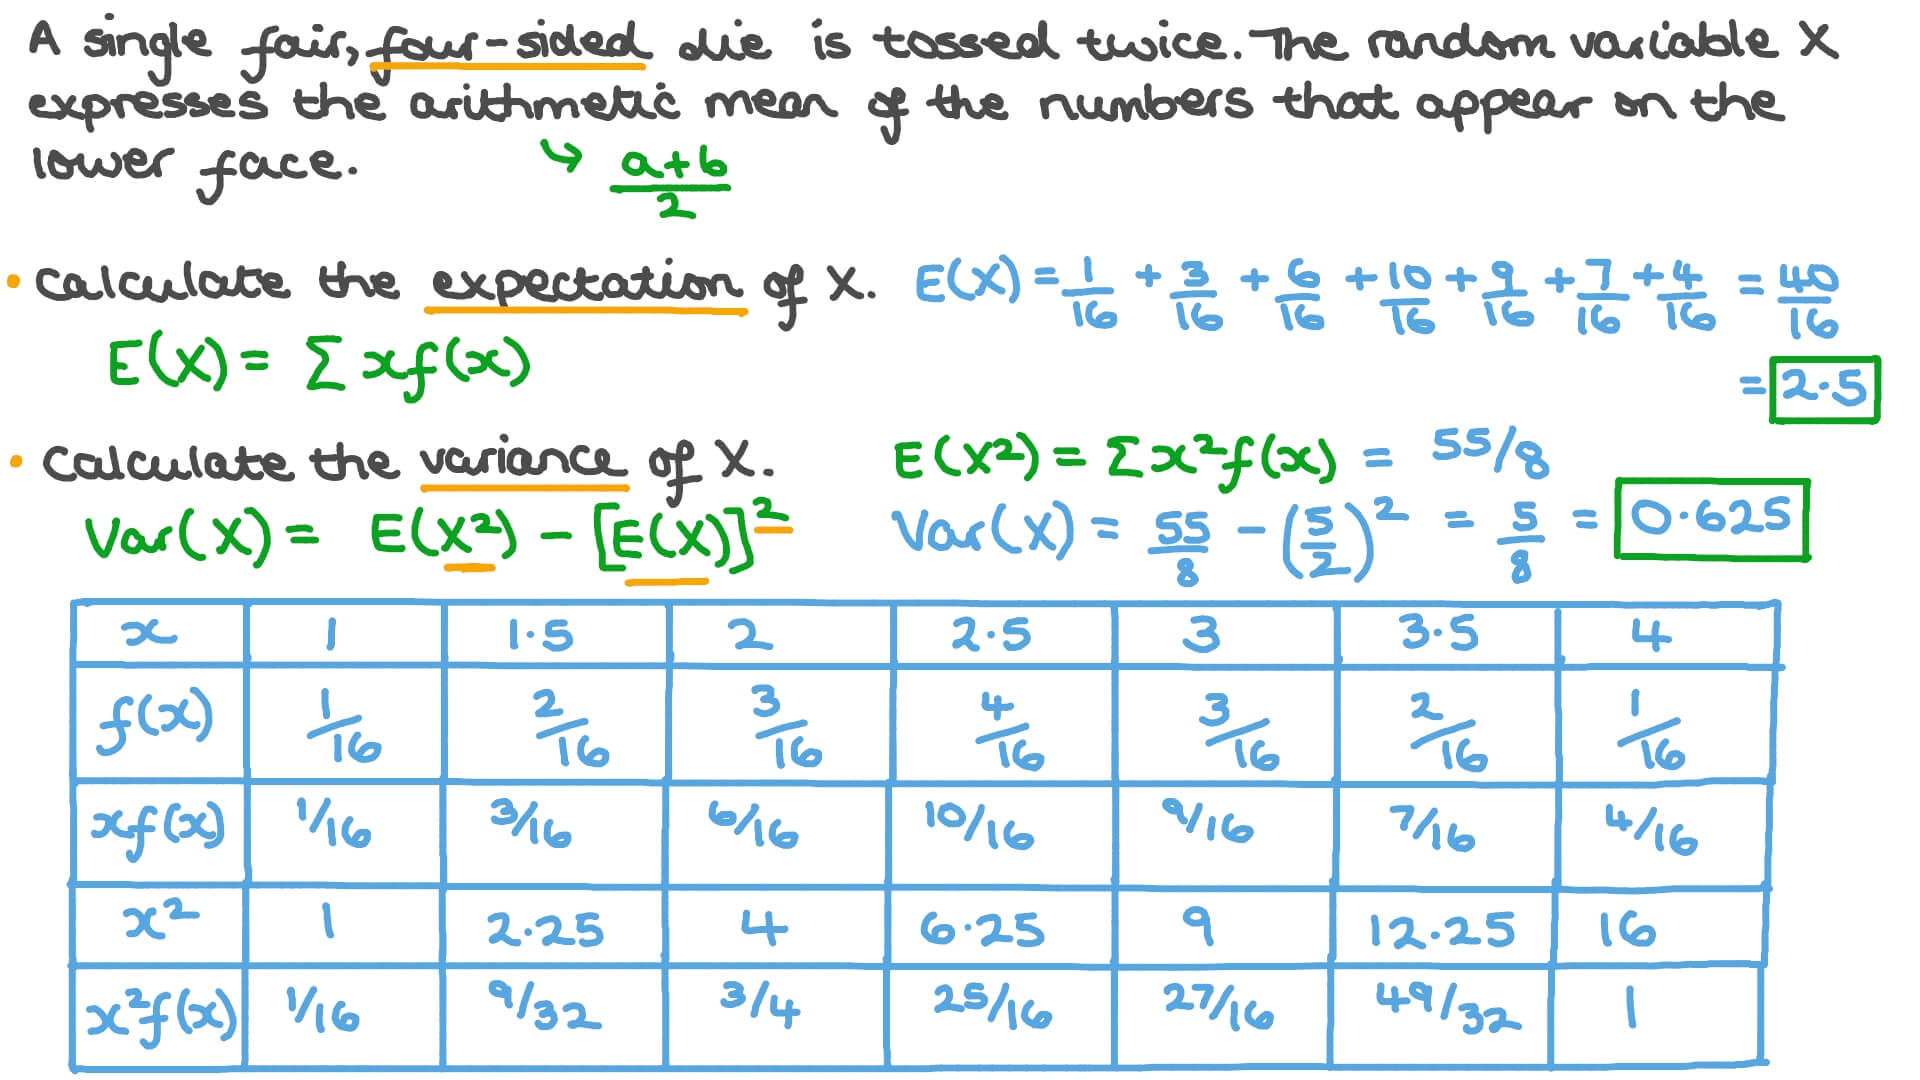 A single fair, four-sided die is tossed twice. The random variable X
expresses the arithmetic mean of the numbers that appear on the
lower face.
↳ a+b/2
• Calculate the expectation of X.
E(X) = 1/16 + 3/16 + 6/16 + 10/16 + 9/16 + 7/16 + 4/16 = 40/16
= 2.5
E(X) = Σ xf(x)
• Calculate the variance of X.
E(X²) = Σx²f(x) = 55/8
Var(X) = E(X²) - [E(X)]²
Var(X) = 55/8 - (5/2)² = 5/8 = 0.625
x 1 1.5 2 2.5 3 3.5 4
f(x) 1/16 2/16 3/16 4/16 3/16 2/16 1/16
xf(x) 1/16 3/16 6/16 10/16 9/16 7/16 4/16
x² 1 2.25 4 6.25 9 12.25 16
x²f(x) 1/16 9/32 3/4 25/16 27/16 49/32 1